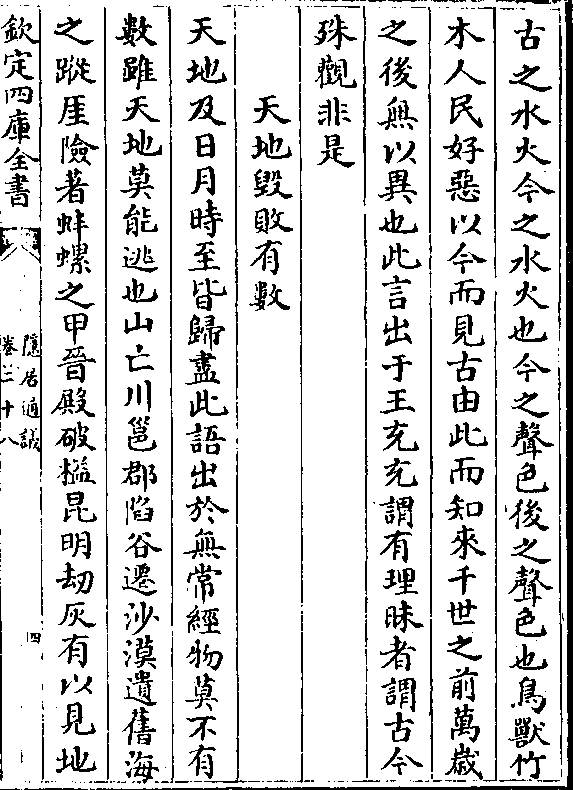 古之水火今之水火也今之聲色後之聲色也鳥獸竹
木人民好惡以今而見古由此而知來千世之前萬歲
之後無以異也此言出于王充充謂有理昧者謂古今
殊觀非是
天地毀敗有數
天地及日月時至皆歸盡此語出於無常經物莫不有
數雖天地莫能逃也山亡川邕郡陷谷遷沙漠遺舊海
之蹤厓險著蚌螺之甲晉殿破𣠄昆明刼灰有以見地
欽定四庫全書
隱居通議
卷二十八
四